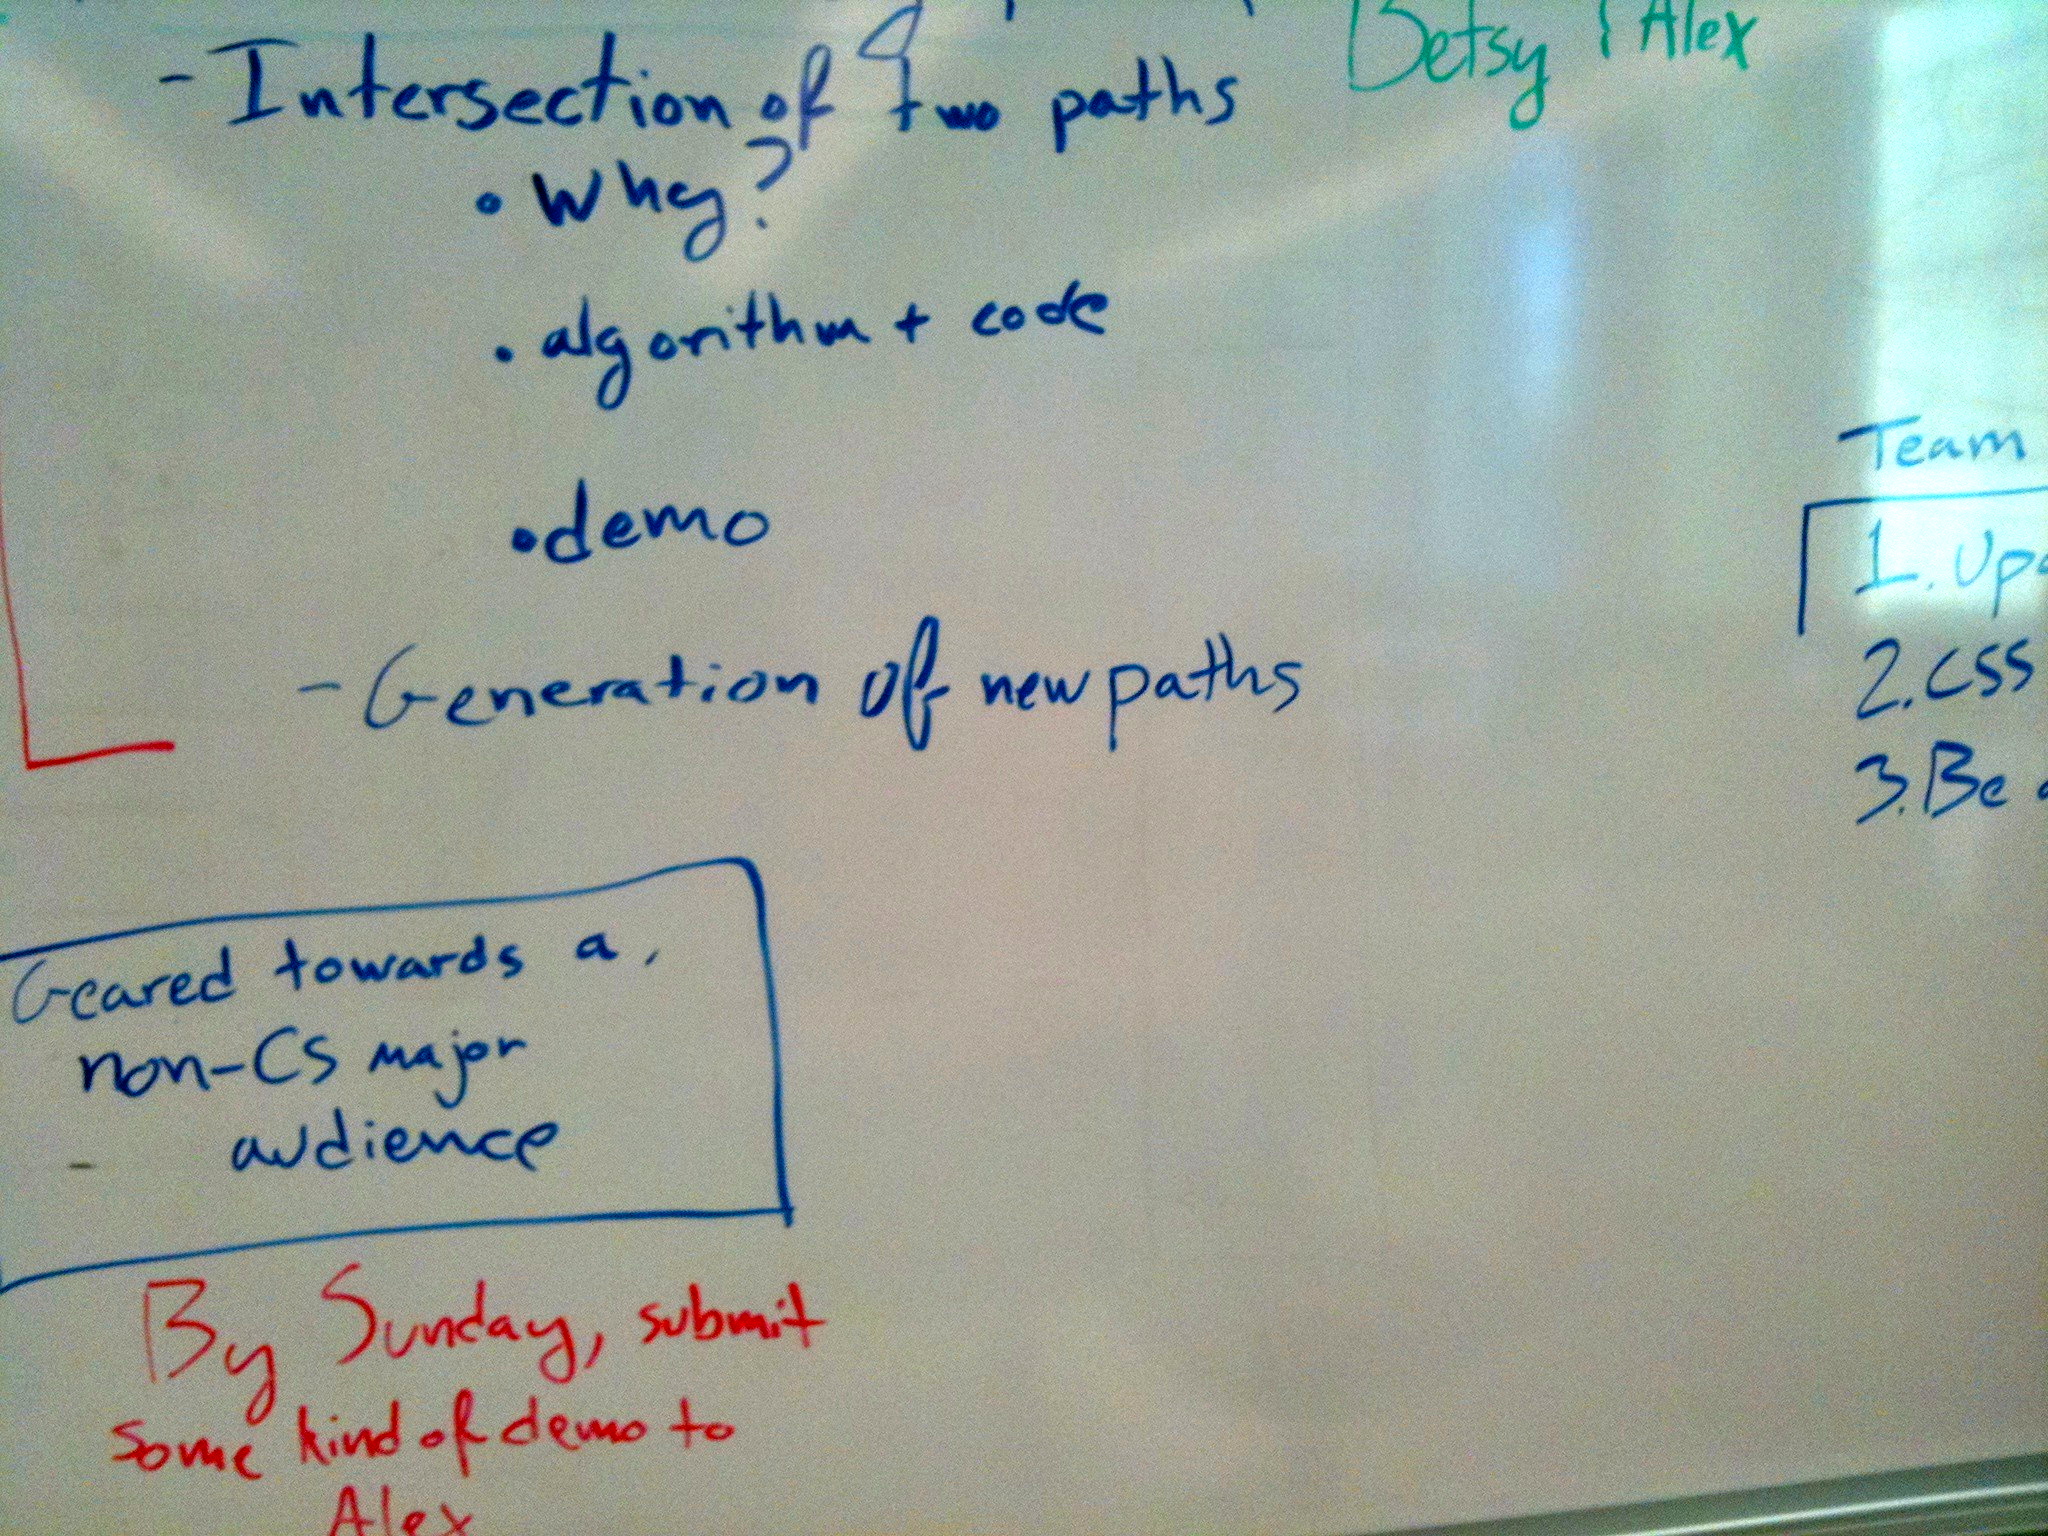 Betsy Alex
- Intersection of two paths
• Why?
• algorithm + code
• demo
- Generation of new paths
Team
1.
2. CSS
3. Be
Geared towards a
non-CS major
audience
By Sunday, submit
some kind of demo to
Alex